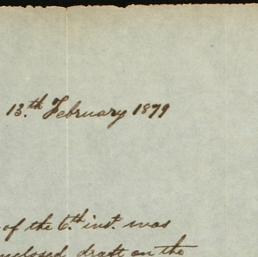 13.th February 1879
of the 6.th inst. was
enclosed draft on the